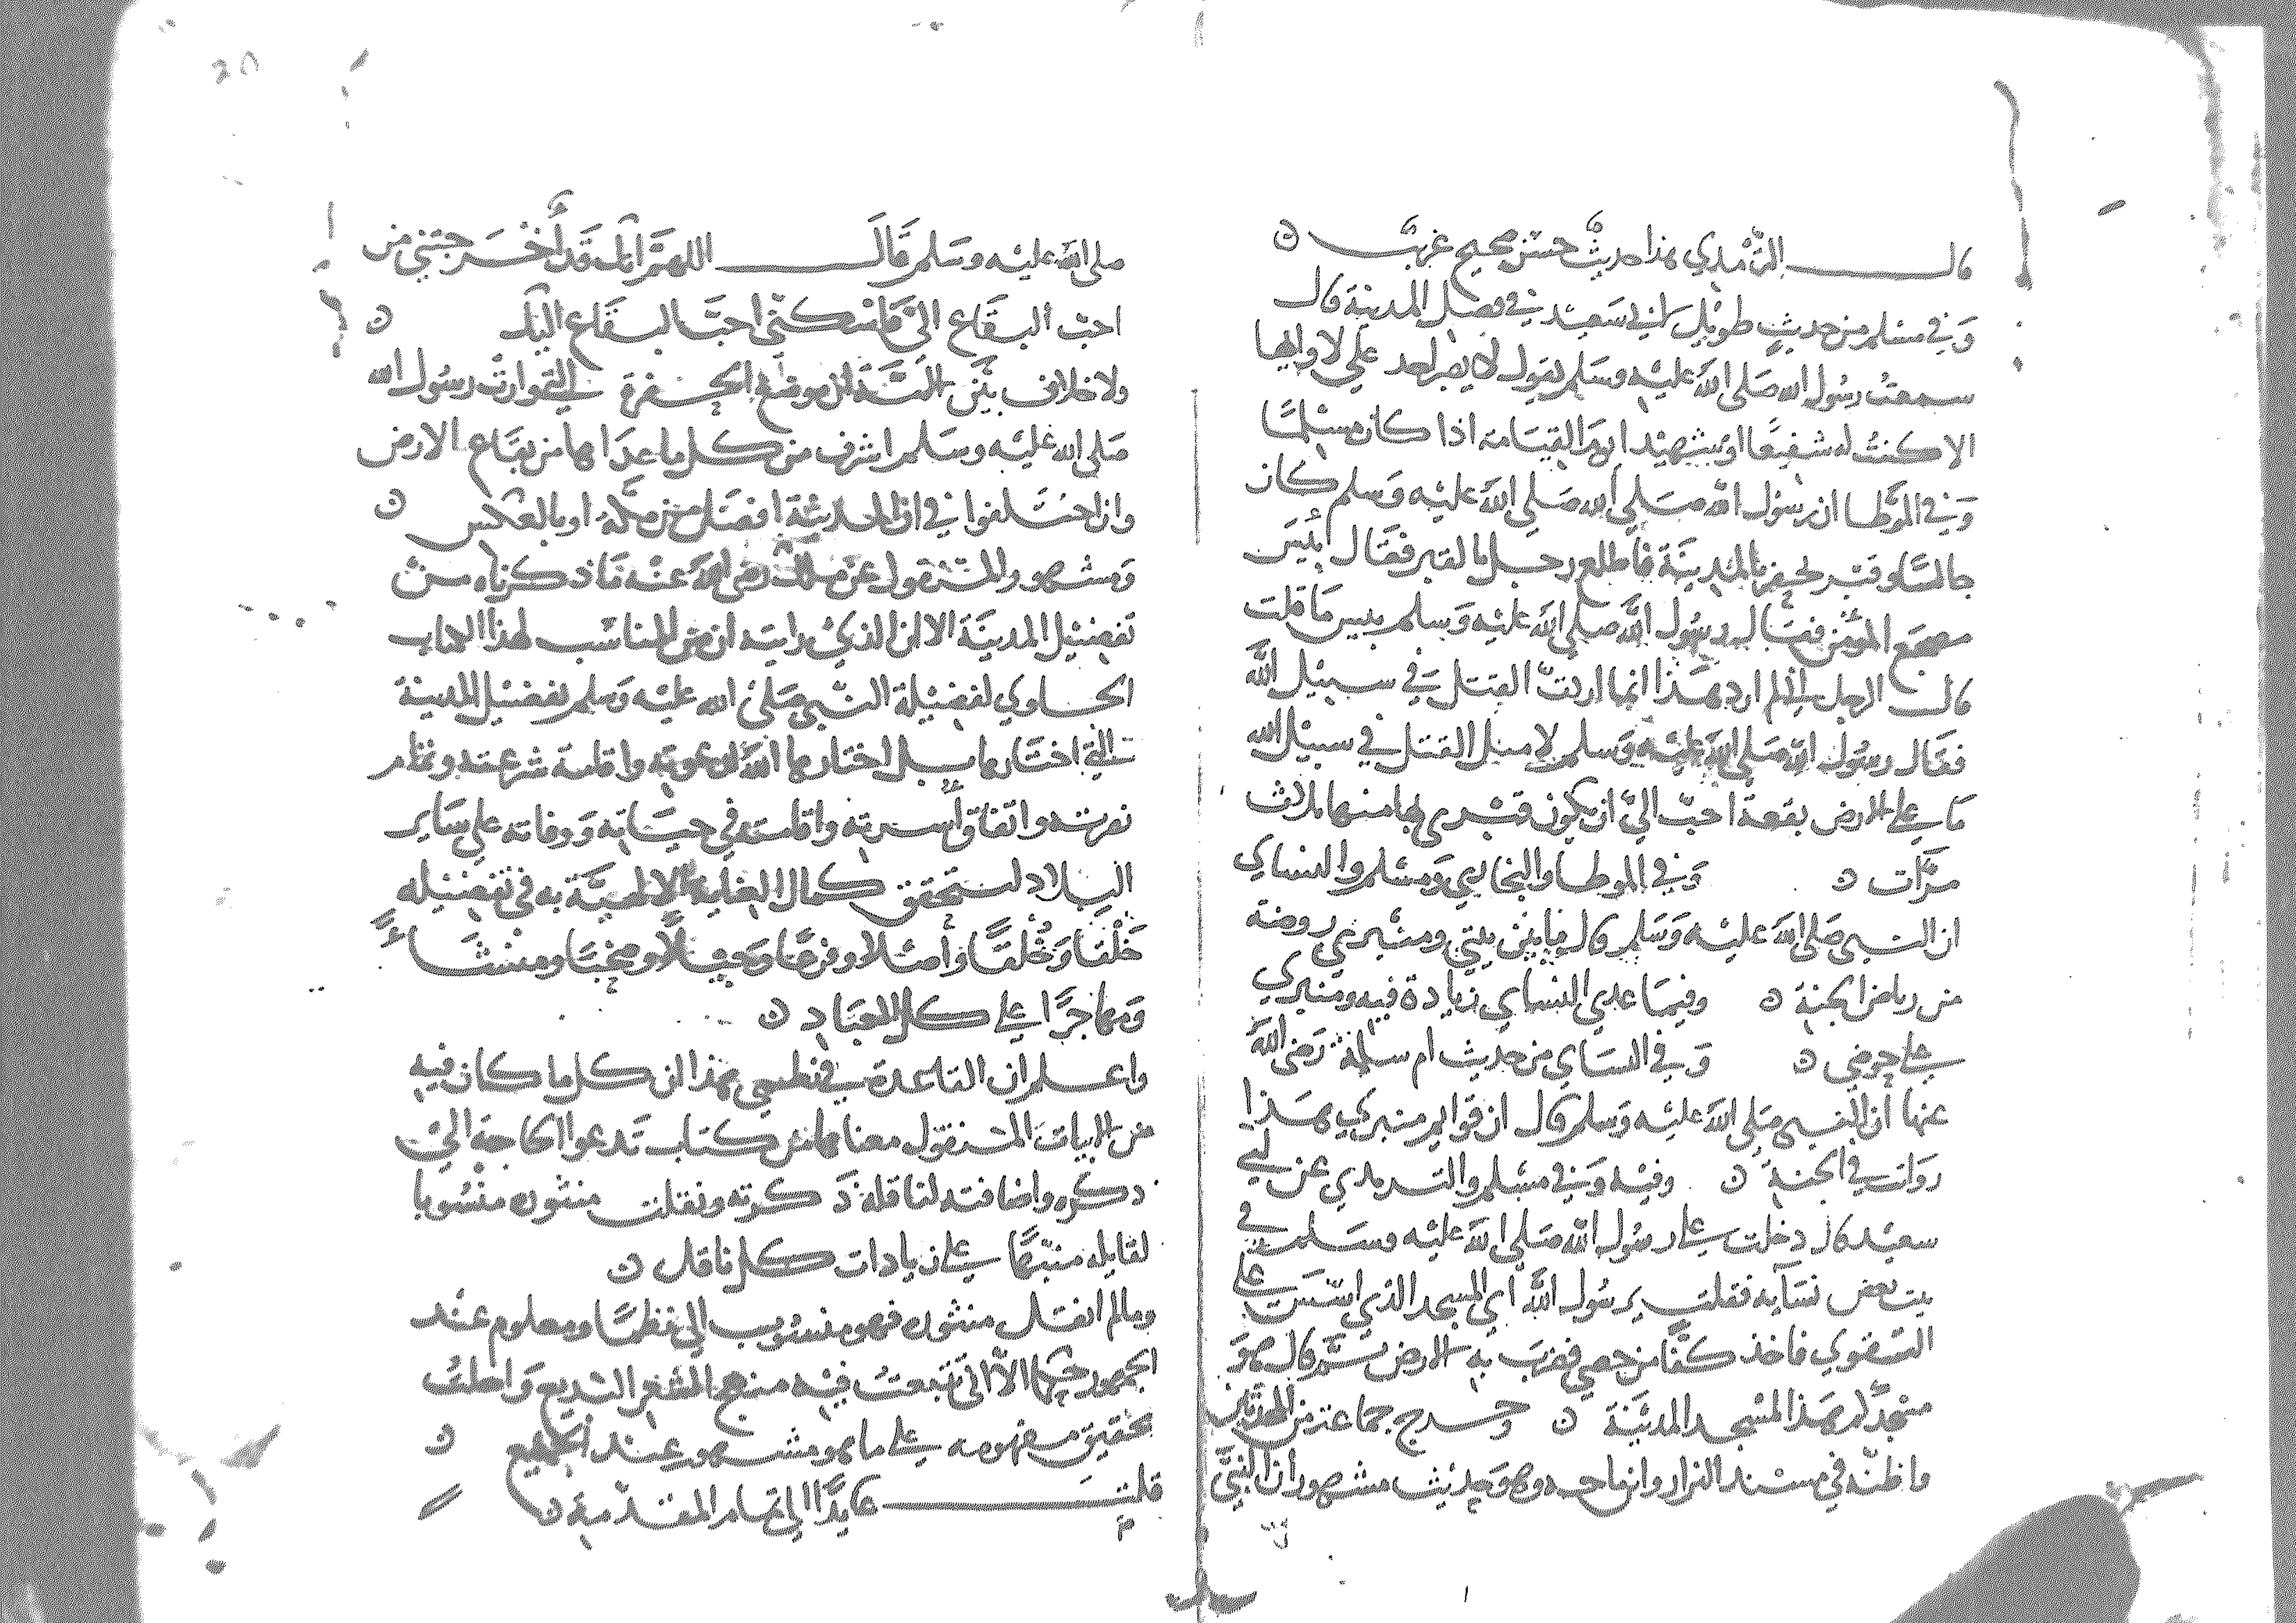 قال الترمذي هذا حديث حسن صحيح غريب ن
وفي مسلم من حديث طويل لابي سعيد في فضل المدينة قال
سمعت رسول الله صلى الله عليه وسلم يقول لا يصبر احد على لاوائها
الا كنت له شفيعا او شهيدا يوم القيامة اذا كان مسلما
وفي الموطا ان رسول الله صلى الله عليه وسلم كان
جالسا وقبر يحفر بالمدينة فاطلع رجل بالقبر فقال بئس
مضجع المؤمن فقال رسول الله صلى الله عليه وسلم بيس ما قلت
قال الرجل اني لم ارد هذا انما اردت القتل في سبيل الله
فقال رسول الله صلى الله عليه وسلم لا مثل القتل في سبيل الله
ما على الارض بقعة احب الي ان يكون قبري بها منها ثلاث
مرات ن وفي الموطا والبخاري ومسلم والنساي
ان النبي صلى الله عليه وسلم قال ما بين بيتي ومنبري روضة
من رياض الجنة ن وفيما عدى النساي زيادة فيه ومنبري
على حوضي ن وفي النساي من حديث ام سلمة رضي الله
عنها ان النبي صلى الله عليه وسلم قال ان قوايم منبري هذا
رواتب في الجنة ن وفيه وفي مسلم والترمذي عن ابي
سعيد قال دخلت على رسول الله صلى الله عليه وسلم في
بيت بعض نسآيه فقلت يرسول الله اي المسجد الذي اسس على
التقوي فاخذ كفا من حصى فضرب به الارض ثم قال هو
مسجدكم هذا لمسجد المدينة ن وخرج جماعة من المحدثين
واظنه في مسند البزار وانما احمد وهو حديث مشهور ان النبي
صلى الله عليه وسلم قال اللهم انك قد أخرجتني من
احب البقاع الي فاسكني احب البقاع اليك ن
ولا خلاف بين الائمة ان موضع الحفرة التي وارت رسول الله
صلى الله عليه وسلم اشرف من كل ما عداها من بقاع الارض
وان اختلفوا في ان المدينة افضل من مكة او بالعكس ن
ومشهور المنقول عن مالك رضي الله عنه ما ذكرناه من
تفضيل المدينة الا ان الذي رايته ان من المناسب لهذا الكتاب
الحاوي لفضيلة النبي صلى الله عليه وسلم تفضيل المدينة
التي اختارها بل اختارها الله لدعوته واقامة شرعته ونظام
نصرته واتفاق أسرته واقامته في حياته ووفاته على ساير
البلاد لتحقق كمال العناية الالهية به في تفضيله
خَلْقا وخُلُقا وأصلا وفرعا وجيلا وصحبا ومنشأ
ومهاجرا على كل العباد ن
واعلم ان القاعدة في نظمي هذا ان كل ما كان فيه
من الابيات المنقول معناها من كتاب تدعوا الحاجة الى
ذكره واضافته لناقله ذكرته ونقلت منثوره منسوبا
لقايله منبها على زيادات كل ناقل ن
وما لم انقل منثوره فهو منسوب الي نظما ومعلوم عند
الجمهور حكما الا اني تتبعت فيه منهج الشعر البديع واحلت
تحقيق مفهومه على ما هو مشهور عند الجميع ن
قلت عايدا الى تمام المقدمة ن